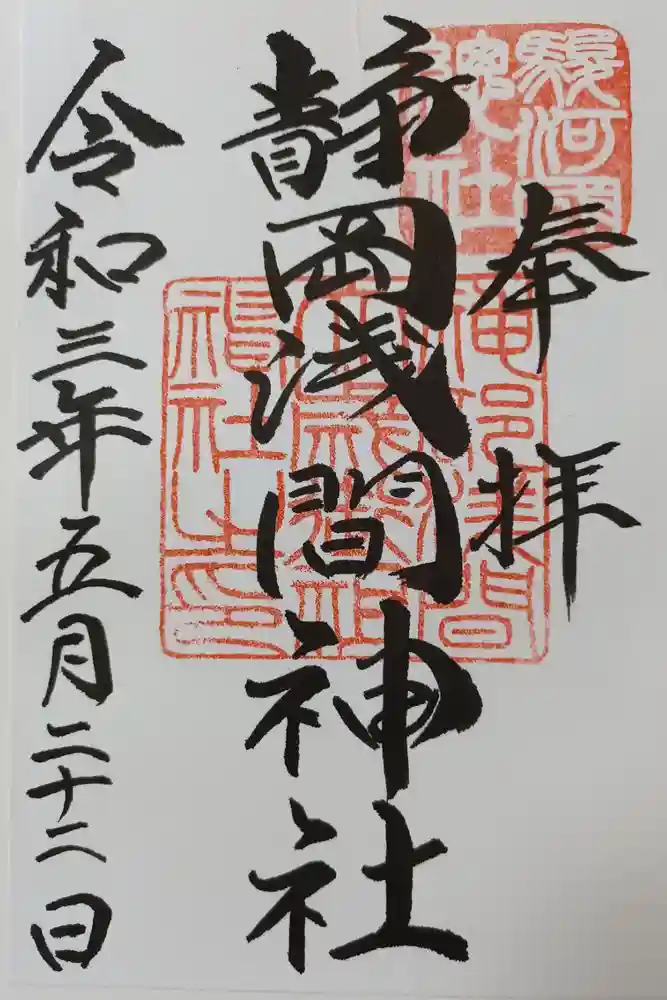 奉拝
駿河國
總社
静岡浅間神社
令和三年五月二十二日